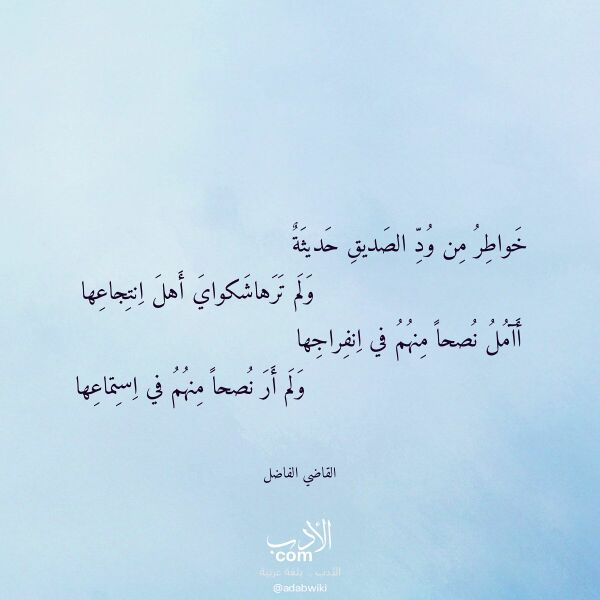 خَواطِرُ مِن وُدِّ الصَديقِ حَديثَةٌ
وَلَم تَرَهاشَكوايَ أَهلَ اِنتِجاعِها
أَآمُلُ نُصحاً مِنهُمُ في اِنفِراجِها
وَلَم أَرَ نُصحاً مِنهُمُ في اِستِماعِها
القاضي الفاضل
الأدب
com
الأدب .. بلغة عربية
@adabwiki